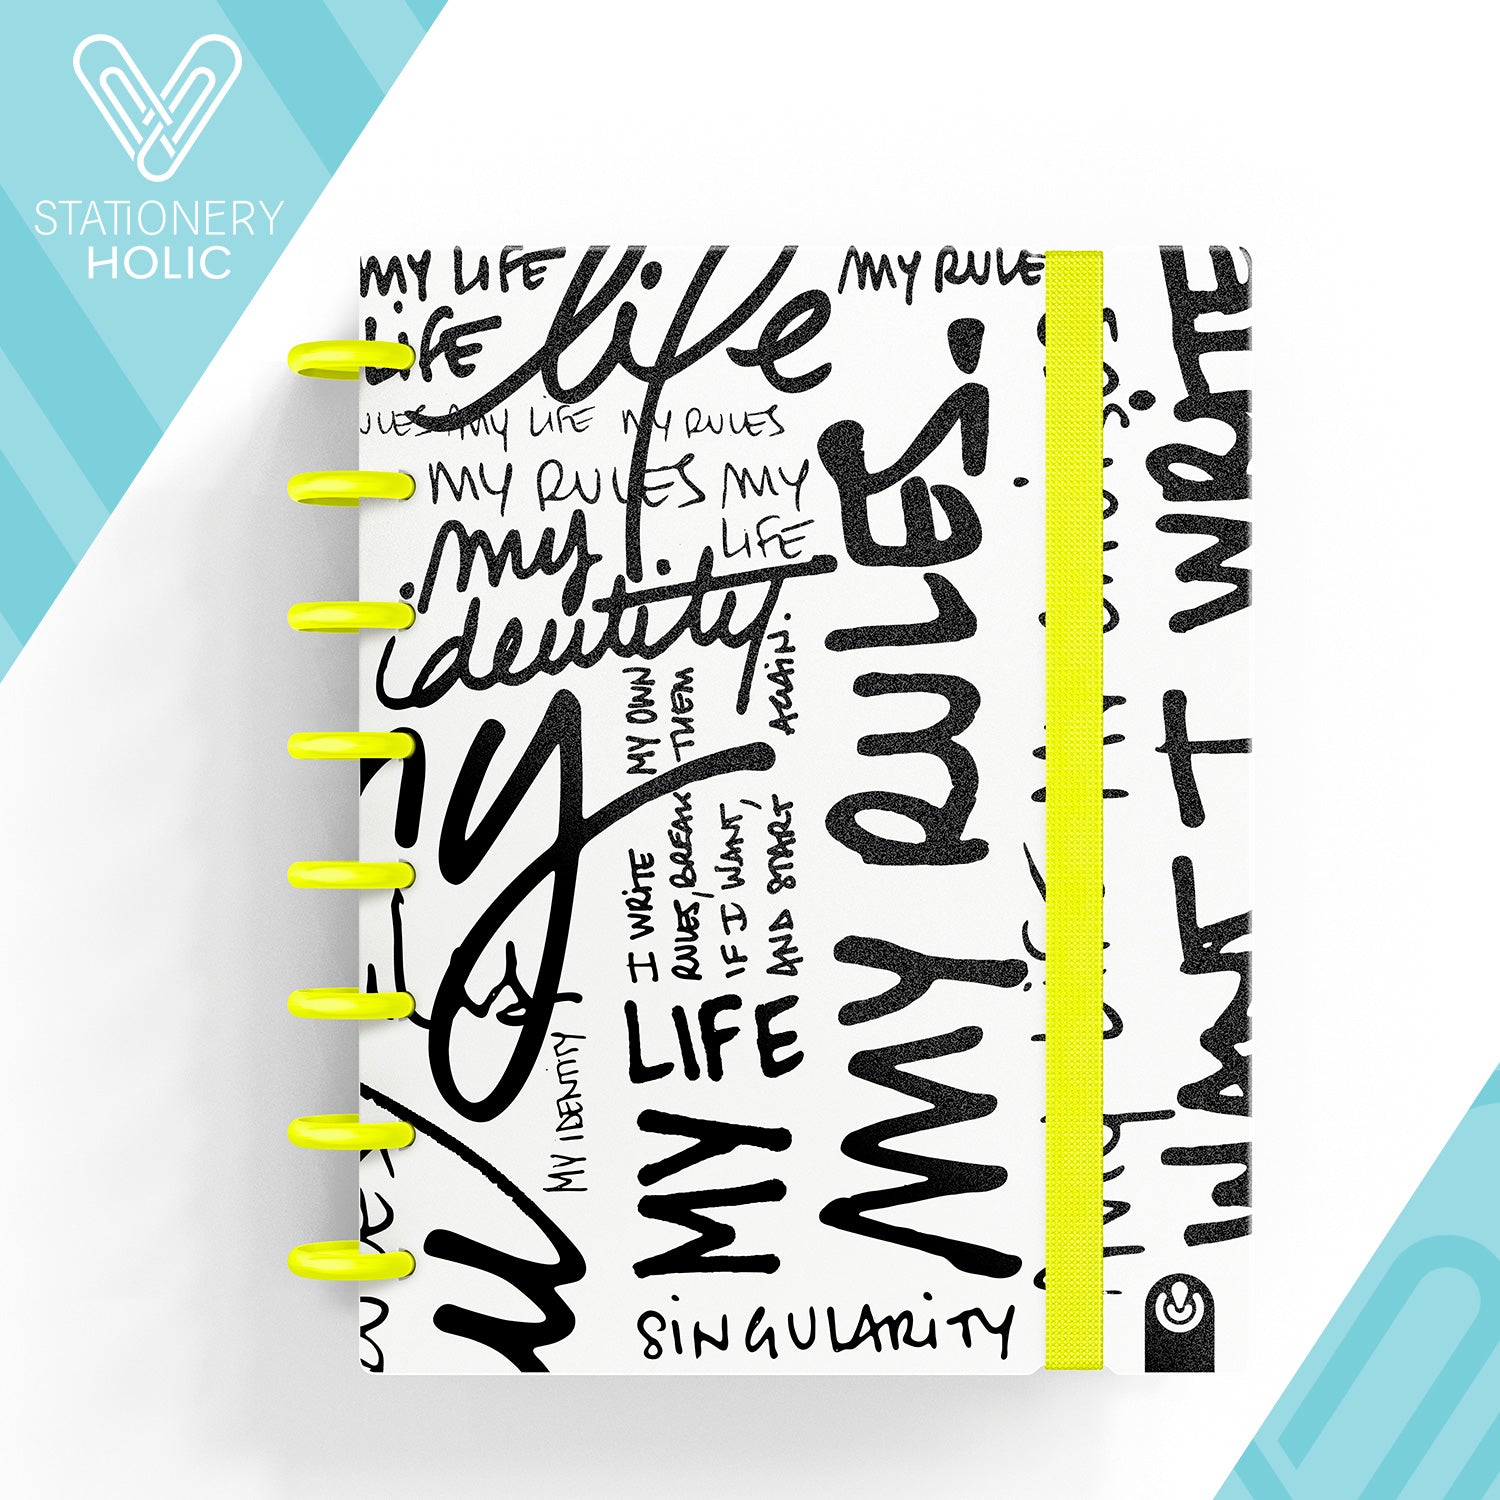 STATIONERY
HOLIC
MY LIFE
life
MY RULE
LIFE
MY LIFE MY RULES
MY RULES MY
LIFE
my
identity
My
I WRITE MY OWN
RULES, BREAK THEM
IF I WANT,
AND START AGAIN.
MY LIFE
MY RULES.
I WRITE
MY IDENTITY
SINGULARITY